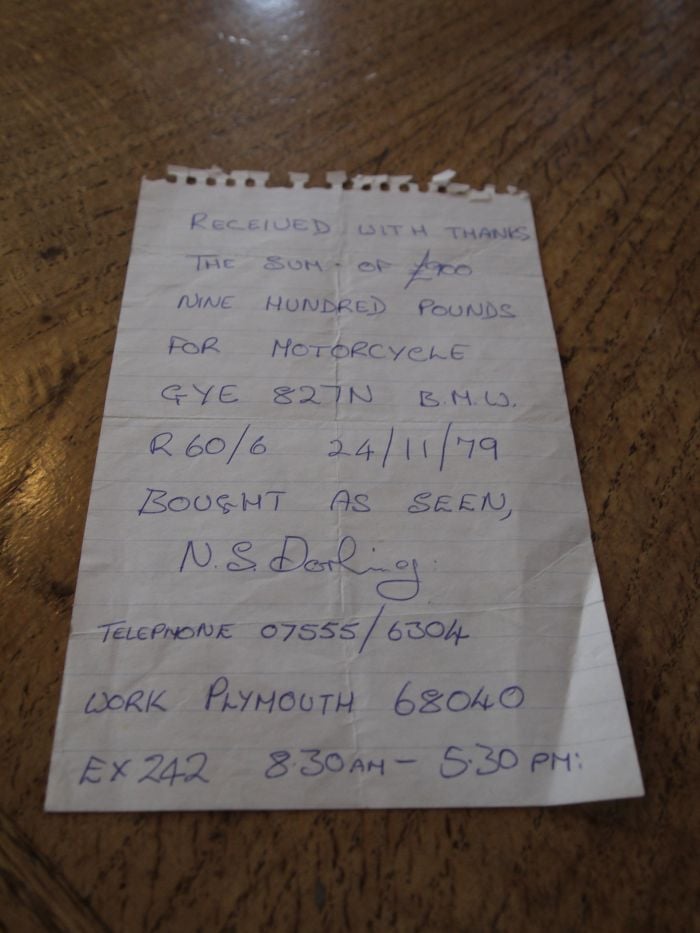 RECEIVED WITH THANKS
THE SUM OF £900
NINE HUNDRED POUNDS
FOR MOTORCYCLE
GYE 827N B.M.W.
R60/6 24/11/79
BOUGHT AS SEEN,
N.S. Darling.
TELEPHONE 07555/6304
WORK PLYMOUTH 68040
EX 242 8.30AM - 5.30 PM: